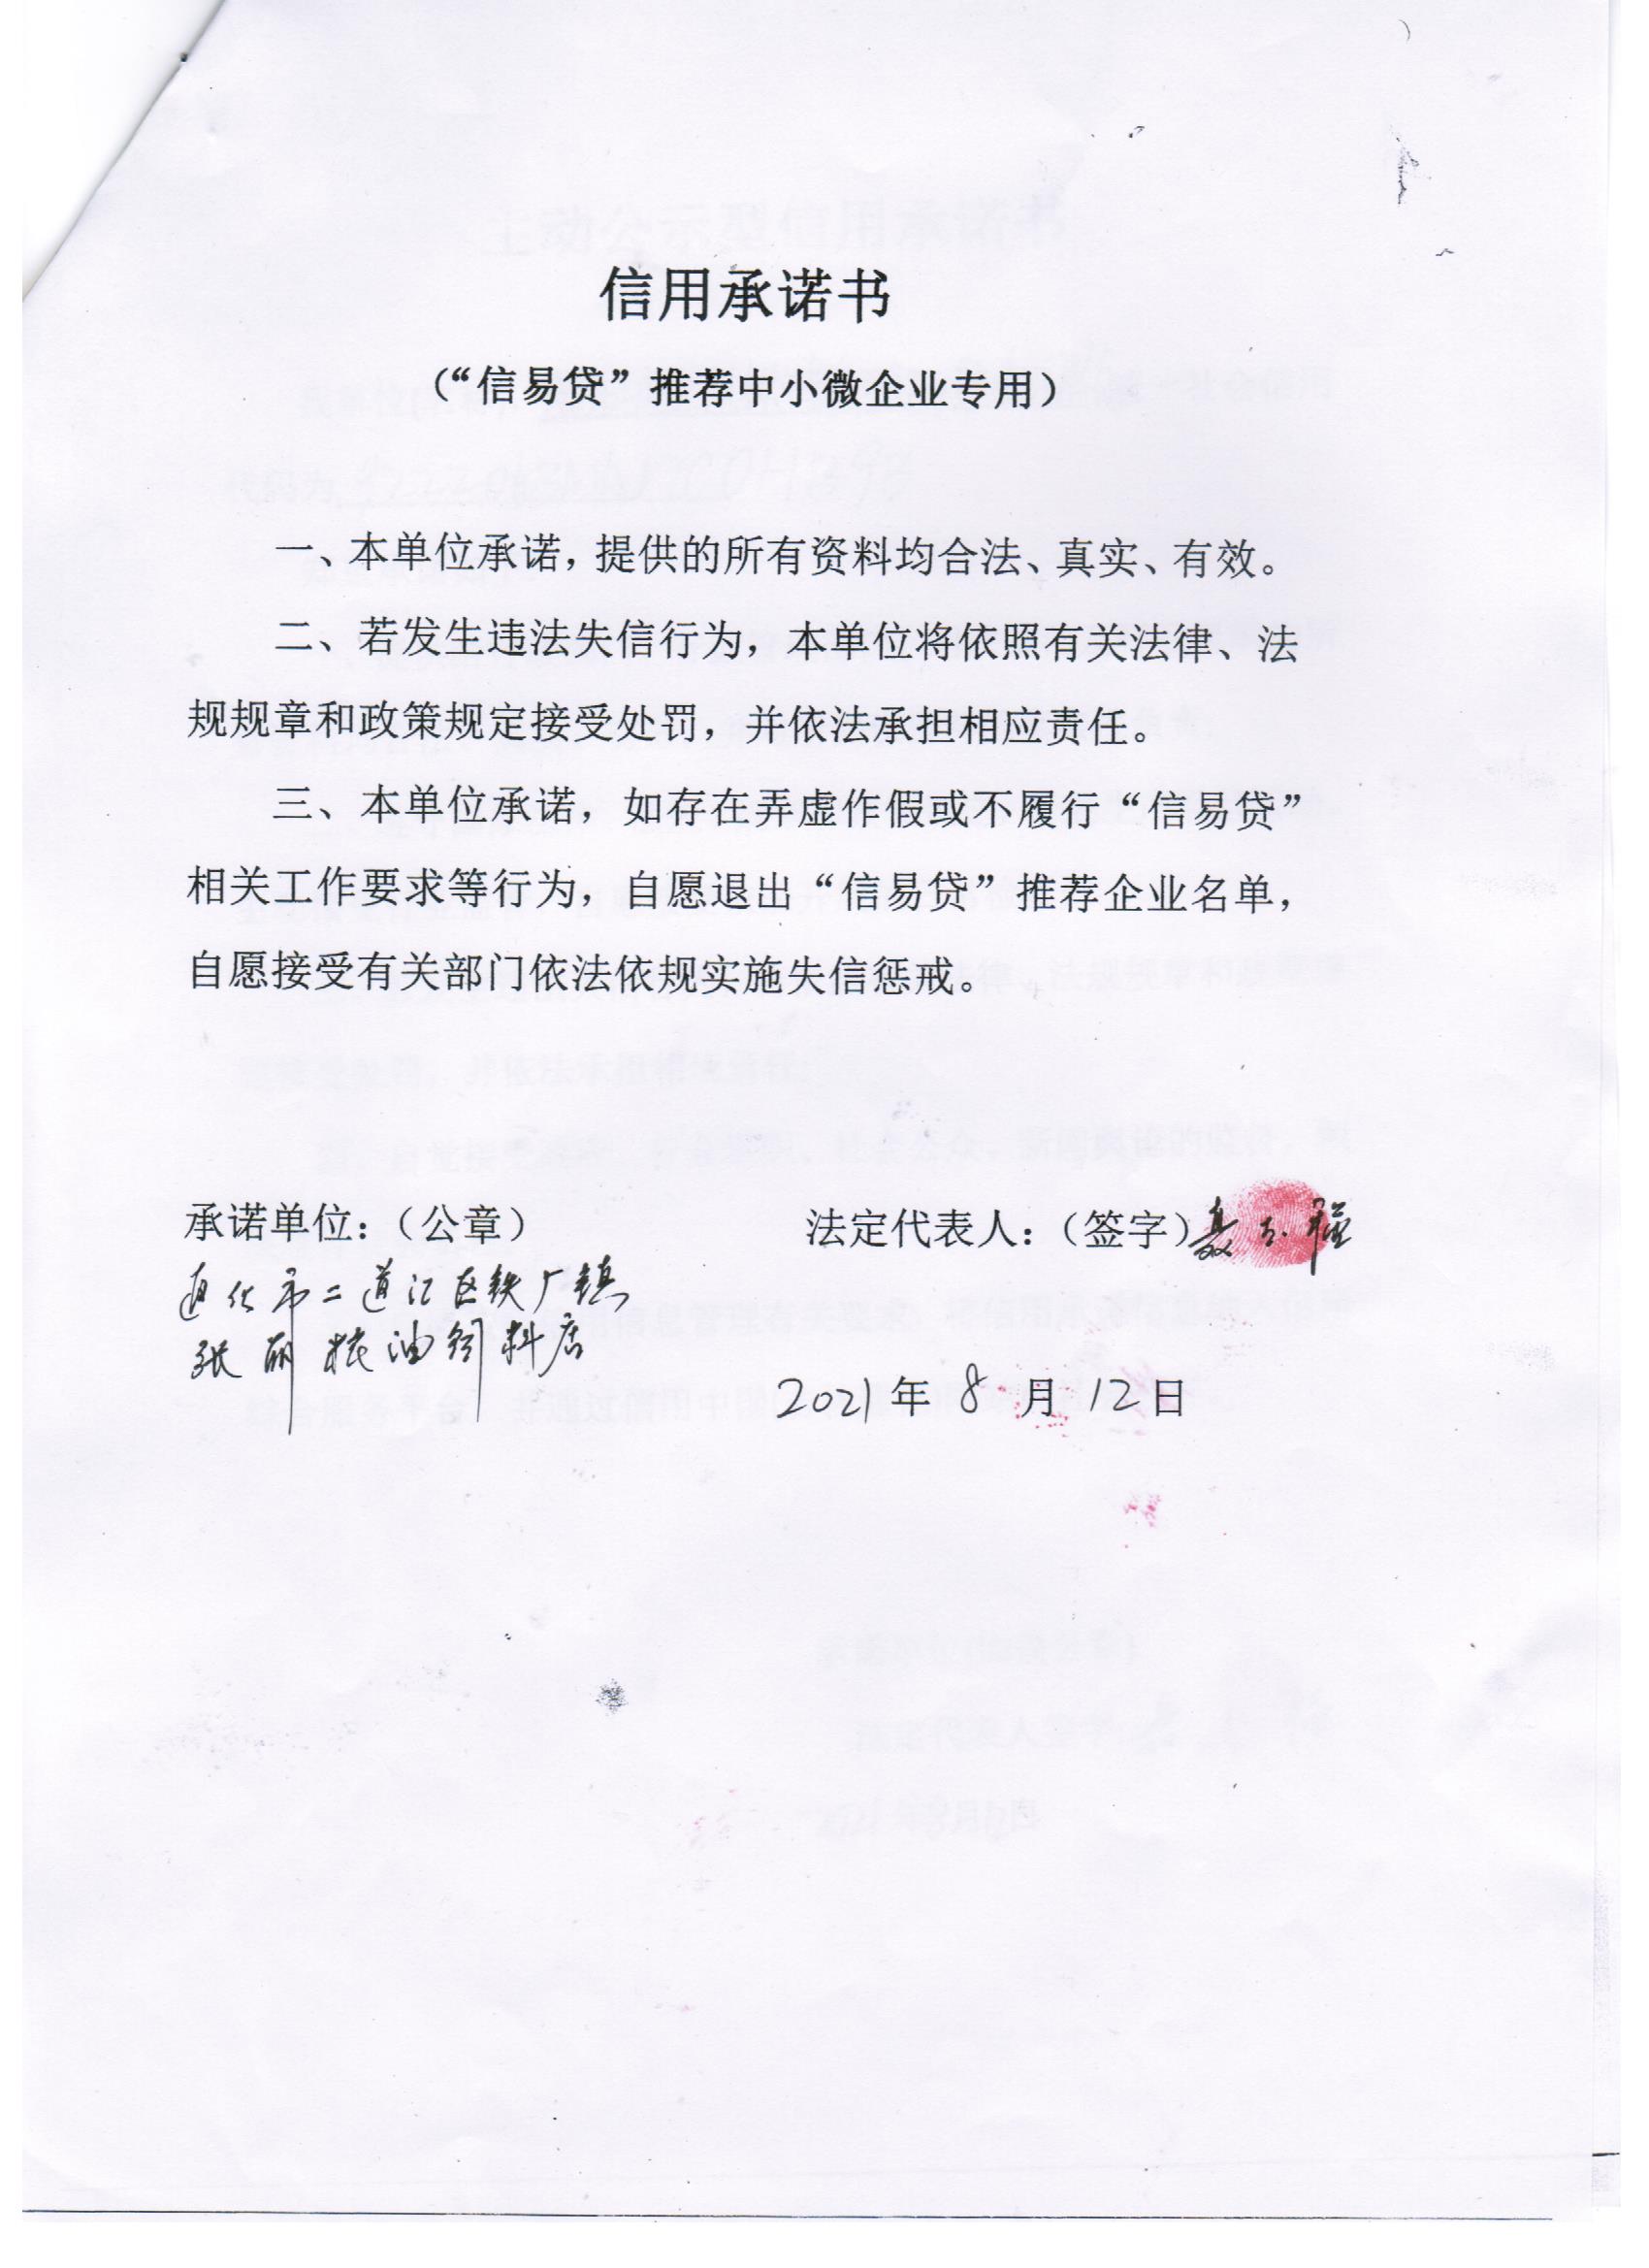 信用承诺书
（“信易贷”推荐中小微企业专用）
一、本单位承诺，提供的所有资料均合法、真实、有效。
二、若发生违法失信行为，本单位将依照有关法律、法
规规章和政策规定接受处罚，并依法承担相应责任。
三、本单位承诺，如存在弄虚作假或不履行“信易贷”
相关工作要求等行为，自愿退出“信易贷”推荐企业名单，
自愿接受有关部门依法依规实施失信惩戒。
承诺单位：（公章） 法定代表人：（签字）
通化市二道江区铁厂镇
张丽粮油饲料店
2021年8月12日